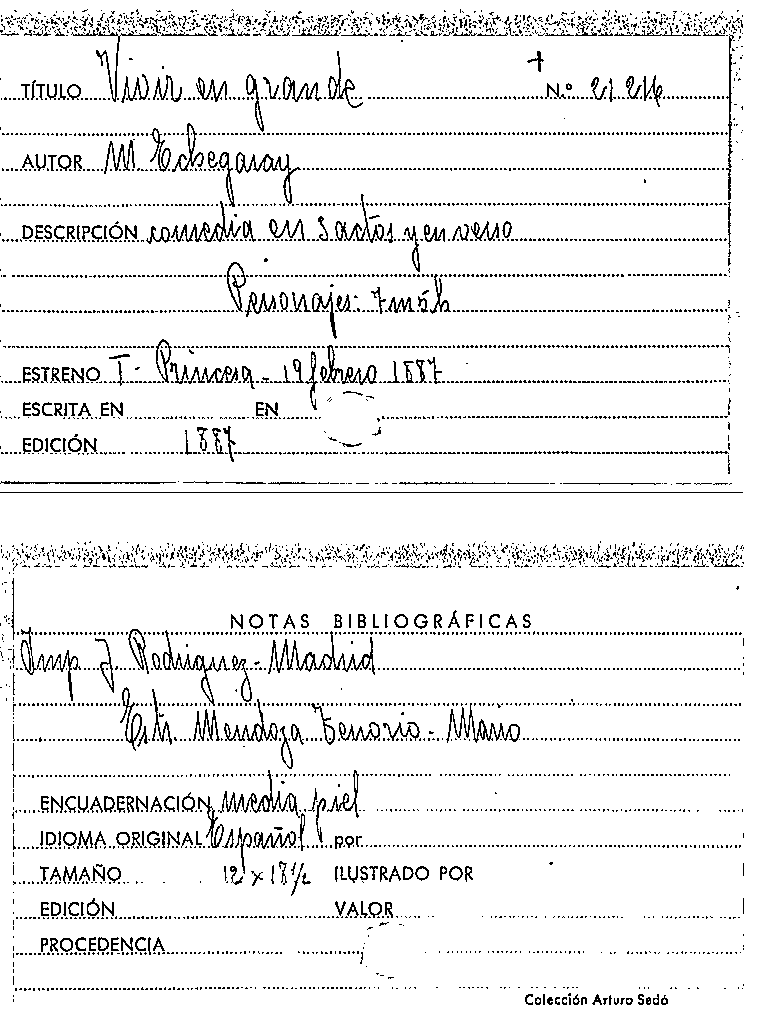 TÍTULO Vivir en grande N.º 21 216
AUTOR M Echegaray
DESCRIPCIÓN comedia en 3 actos y en verso
Personajes: 7m 5h
ESTRENO T. Princesa - 19 febrero 1887
ESCRITA EN EN
EDICIÓN 1887
NOTAS BIBLIOGRÁFICAS
Imp J. Rodriguez - Madrid
Estr. Mendoza Tenorio - Mario
ENCUADERNACIÓN media piel
IDIOMA ORIGINAL Español por
TAMAÑO 12 x 18½ ILUSTRADO POR
EDICIÓN VALOR
PROCEDENCIA
Colección Arturo Sedó